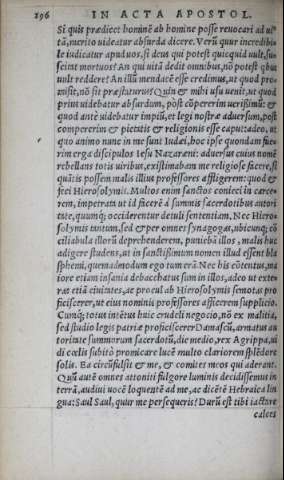 196 IN ACTA APOSTOL.
Si quis prædicet hominẽ ab homine posse reuocari ad ui-
tã, merito uideatur absurda dicere. Verũ quur incredibi
le iudicatur apud uos, si deus qui potest quicquid uult, su-
scitat mortuos? An qui uitã dedit omnibus, nõ potest qbus
uult reddere? An illũ mendacẽ esse credimus, ut quod pro-
misit, nõ sit præstaturus? Quin & mihi usu uenit, ut quod
prius uidebatur absurdum, pòst cõpererim uerißimũ: &
quod ante uidebatur impiũ, et legi nostræ aduersum, pòst
compererim & pietatis & religionis esse caput: adeo, ut
quo animo nunc in me sunt Iudæi, hoc ipse quondam fue-
rim erga discipulos Iesu Nazaræni: aduersus cuius nomẽ
rebellans totis uiribus, existimabam me religiose facere, si
quãtis possem malis illius professores affligerem: quod &
feci Hierosolymis. Multos enim sanctos conieci in carce-
rem, impetrata ut id facerẽ à summis sacerdotibus autori
tate, quumq; occiderentur detuli sententiam. Nec Hiero-
solymis tantum, sed & per omnes synagogas, ubicunq; cõ
ciliabula illorũ deprehenderem, puniebã illos, malis huc
adigere studens, ut in sanctißimum nomen illud essent bla
sphemi, quemadmodum ego tum erã. Nec his cõtentus, ma
iore etiam insania debacchatus sum in illos, adeo ut exte
ras etiã ciuitates, ac procul ab Hierosolymis semotas pro
ficiscerer, ut eius nominis professores afficerem supplicio.
Cumq; totus intẽtus huic crudeli negocio, nõ ex malitia,
sed studio legis patriæ proficiscerer Damascũ, armatus au
toritate summorum sacerdotũ, die medio, rex Agrippa, ui
di cœlis subitò promicare lucẽ multo clariorem splẽdore
solis. Ea circũfulsit & me, & comites meos qui aderant.
Quũ autẽ omnes attoniti fulgore luminis decidissemus in
terrã, audiui uocẽ loquentẽ ad me, ac dicẽtẽ Hebraica lin
gua: Saul Saul, quur me persequeris? Durũ est tibi iactare
calces